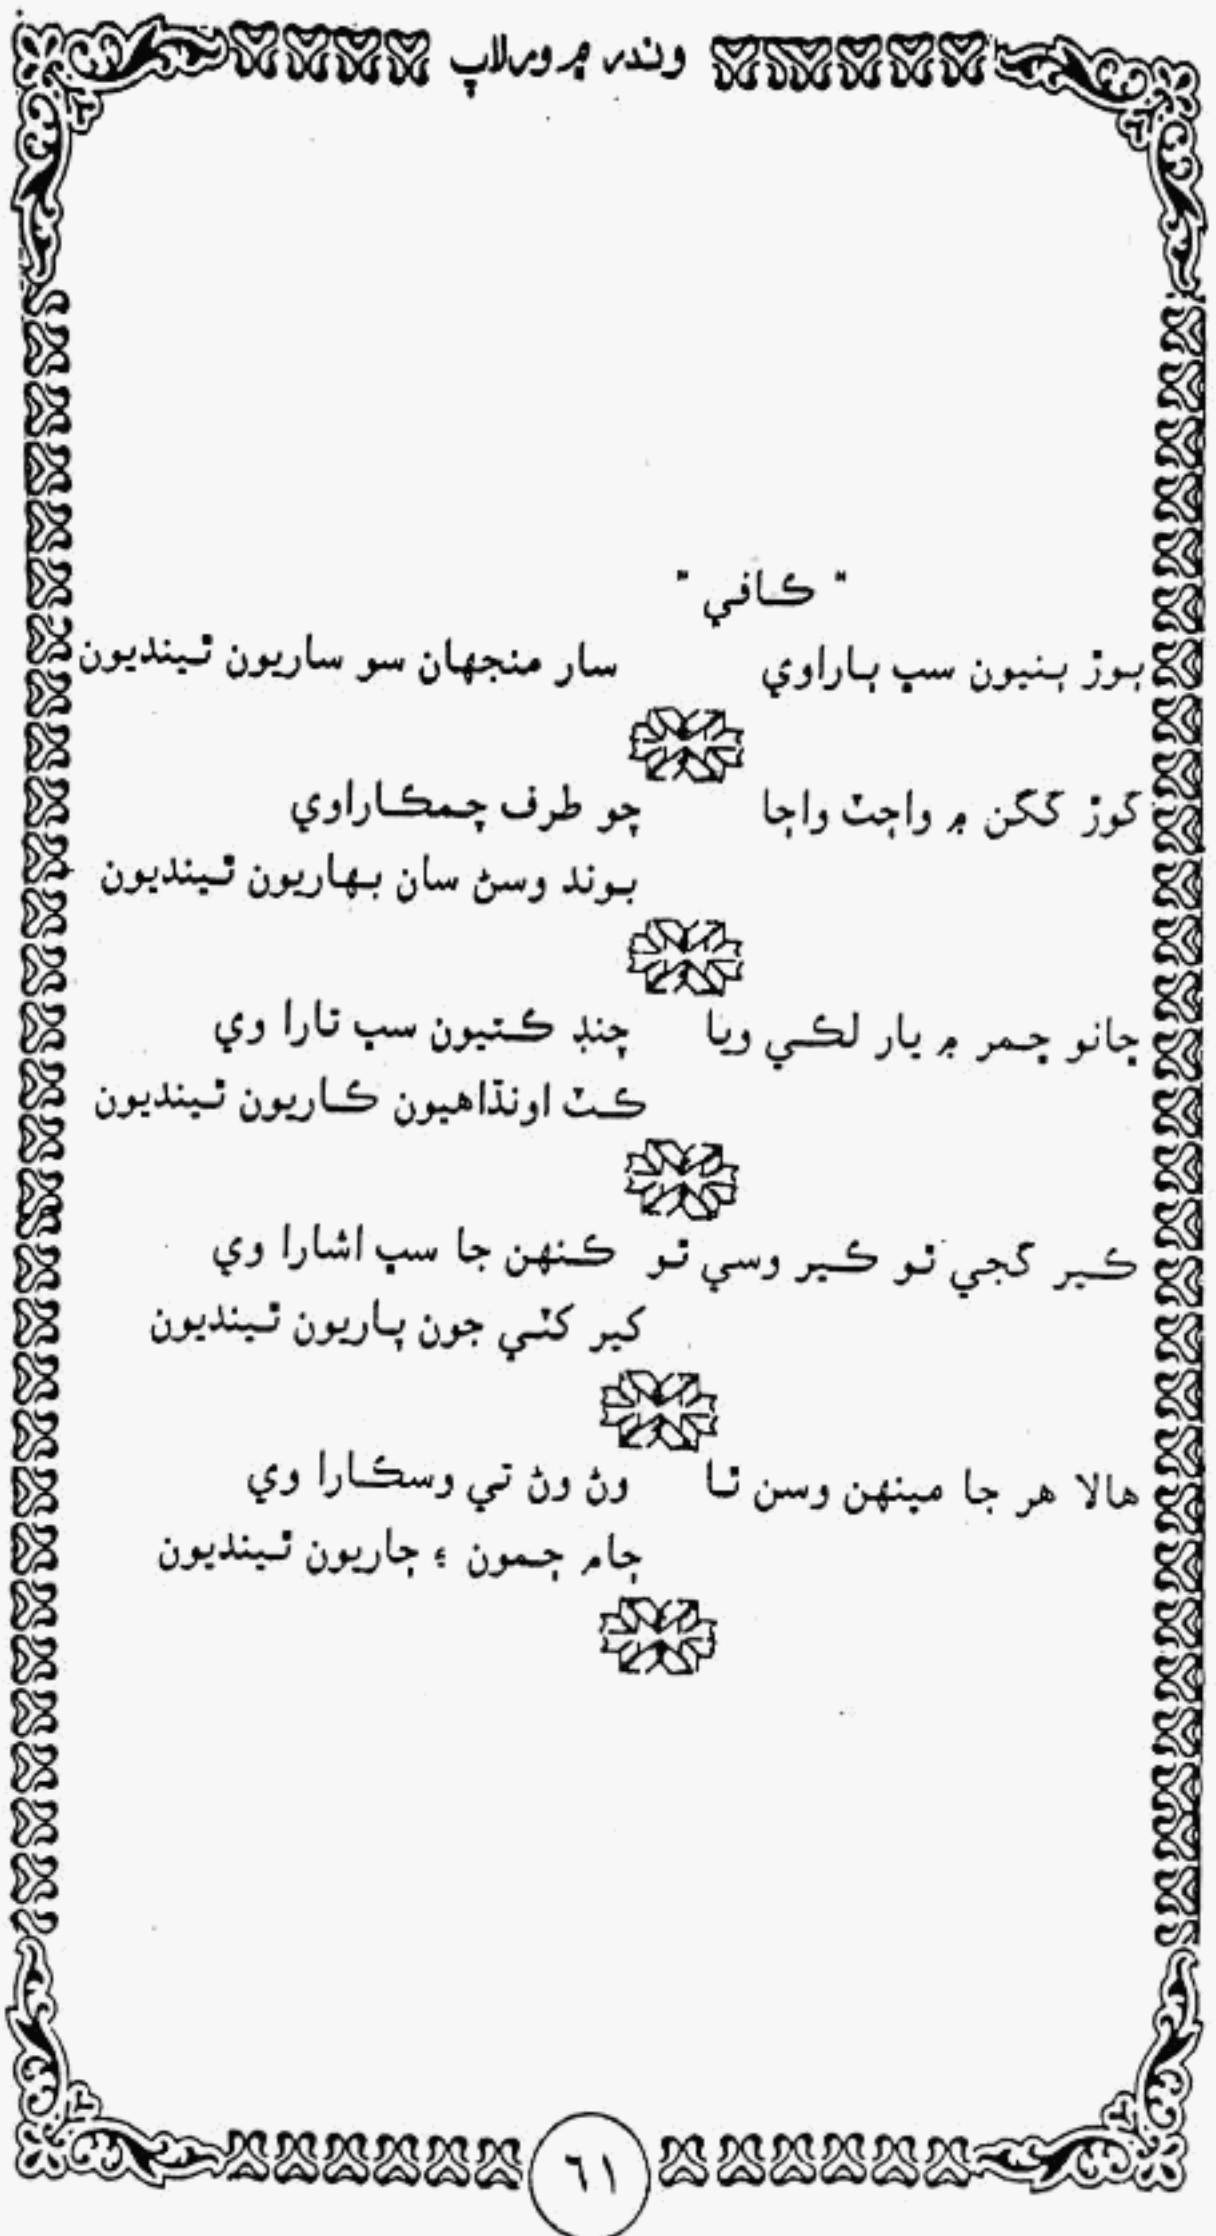 وندر ۾ ورلاپ
" ڪافي "
ٻوڙ ٻنيون سڀ ٻاراوي سار منجهان سو ساريون ٿينديون
گوڙ گگن ۾ واڄٽ واڄا چو طرف چمڪاراوي
بوند وسڻ سان بهاريون ٿينديون
ڄانو ڄمر ۾ يار لڪي ويا چنڊ ڪتيون سڀ تارا وي
ڪٽ اونڌاهيون ڪاريون ٿينديون
ڪير گجي ٿو ڪير وسي ٿو ڪنهن جا سڀ اشارا وي
کير کٽي جون پاريون ٿينديون
هالا هر جا مينهن وسن ٿا وڻ وڻ تي وسڪارا وي
ڄام ڄمون ۽ ڄاريون ٿينديون
٦١